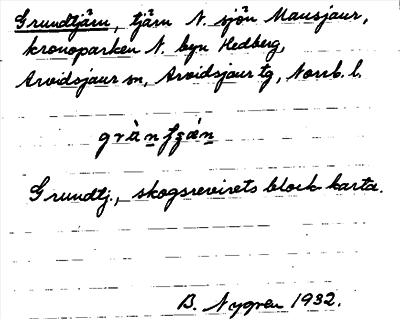 Grundtjärn, tjärn N. sjön Mausjaur,
kronoparken N. byn Hedberg,
Arvidsjaur sn, Arvidsjaur tg, Norrb. l.
Grundtj., skogsrevirets block-karta.
B. Nygren 1932.